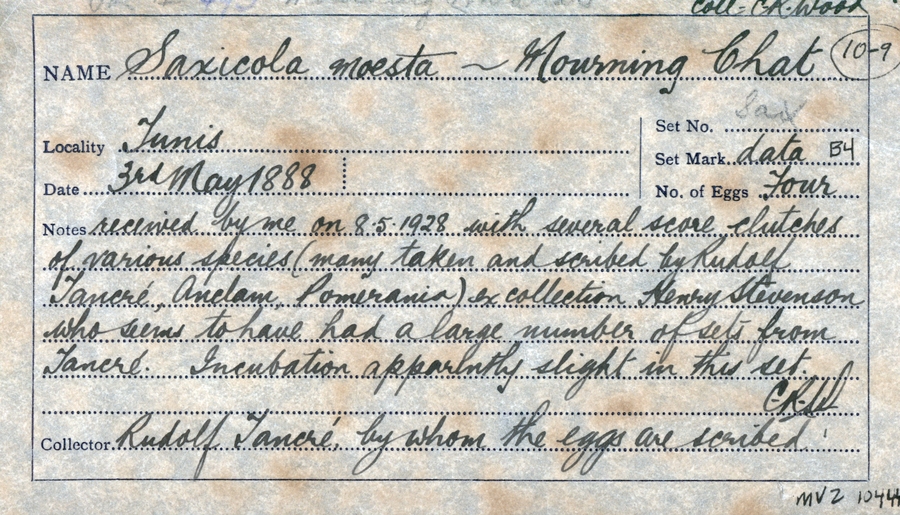 Coll = C.R. Wood
NAME Saxicola moesta ~ Mourning Chat 10-9
Sax
Set No.
Locality Tunis
Set Mark data B4
Date 3rd May 1888
No. of Eggs Four
Notes received by me on 8.5.1928 with several score clutches
of various species (many taken and scribed by Rudolf
Tancré, Anclam, Pomerania) ex collection Henry Stevenson
who seems to have had a large number of sets from
Tancré. Incubation apparently slight in this set.
C.R.W
Collector Rudolf Tancré, by whom the eggs are scribed
MVZ